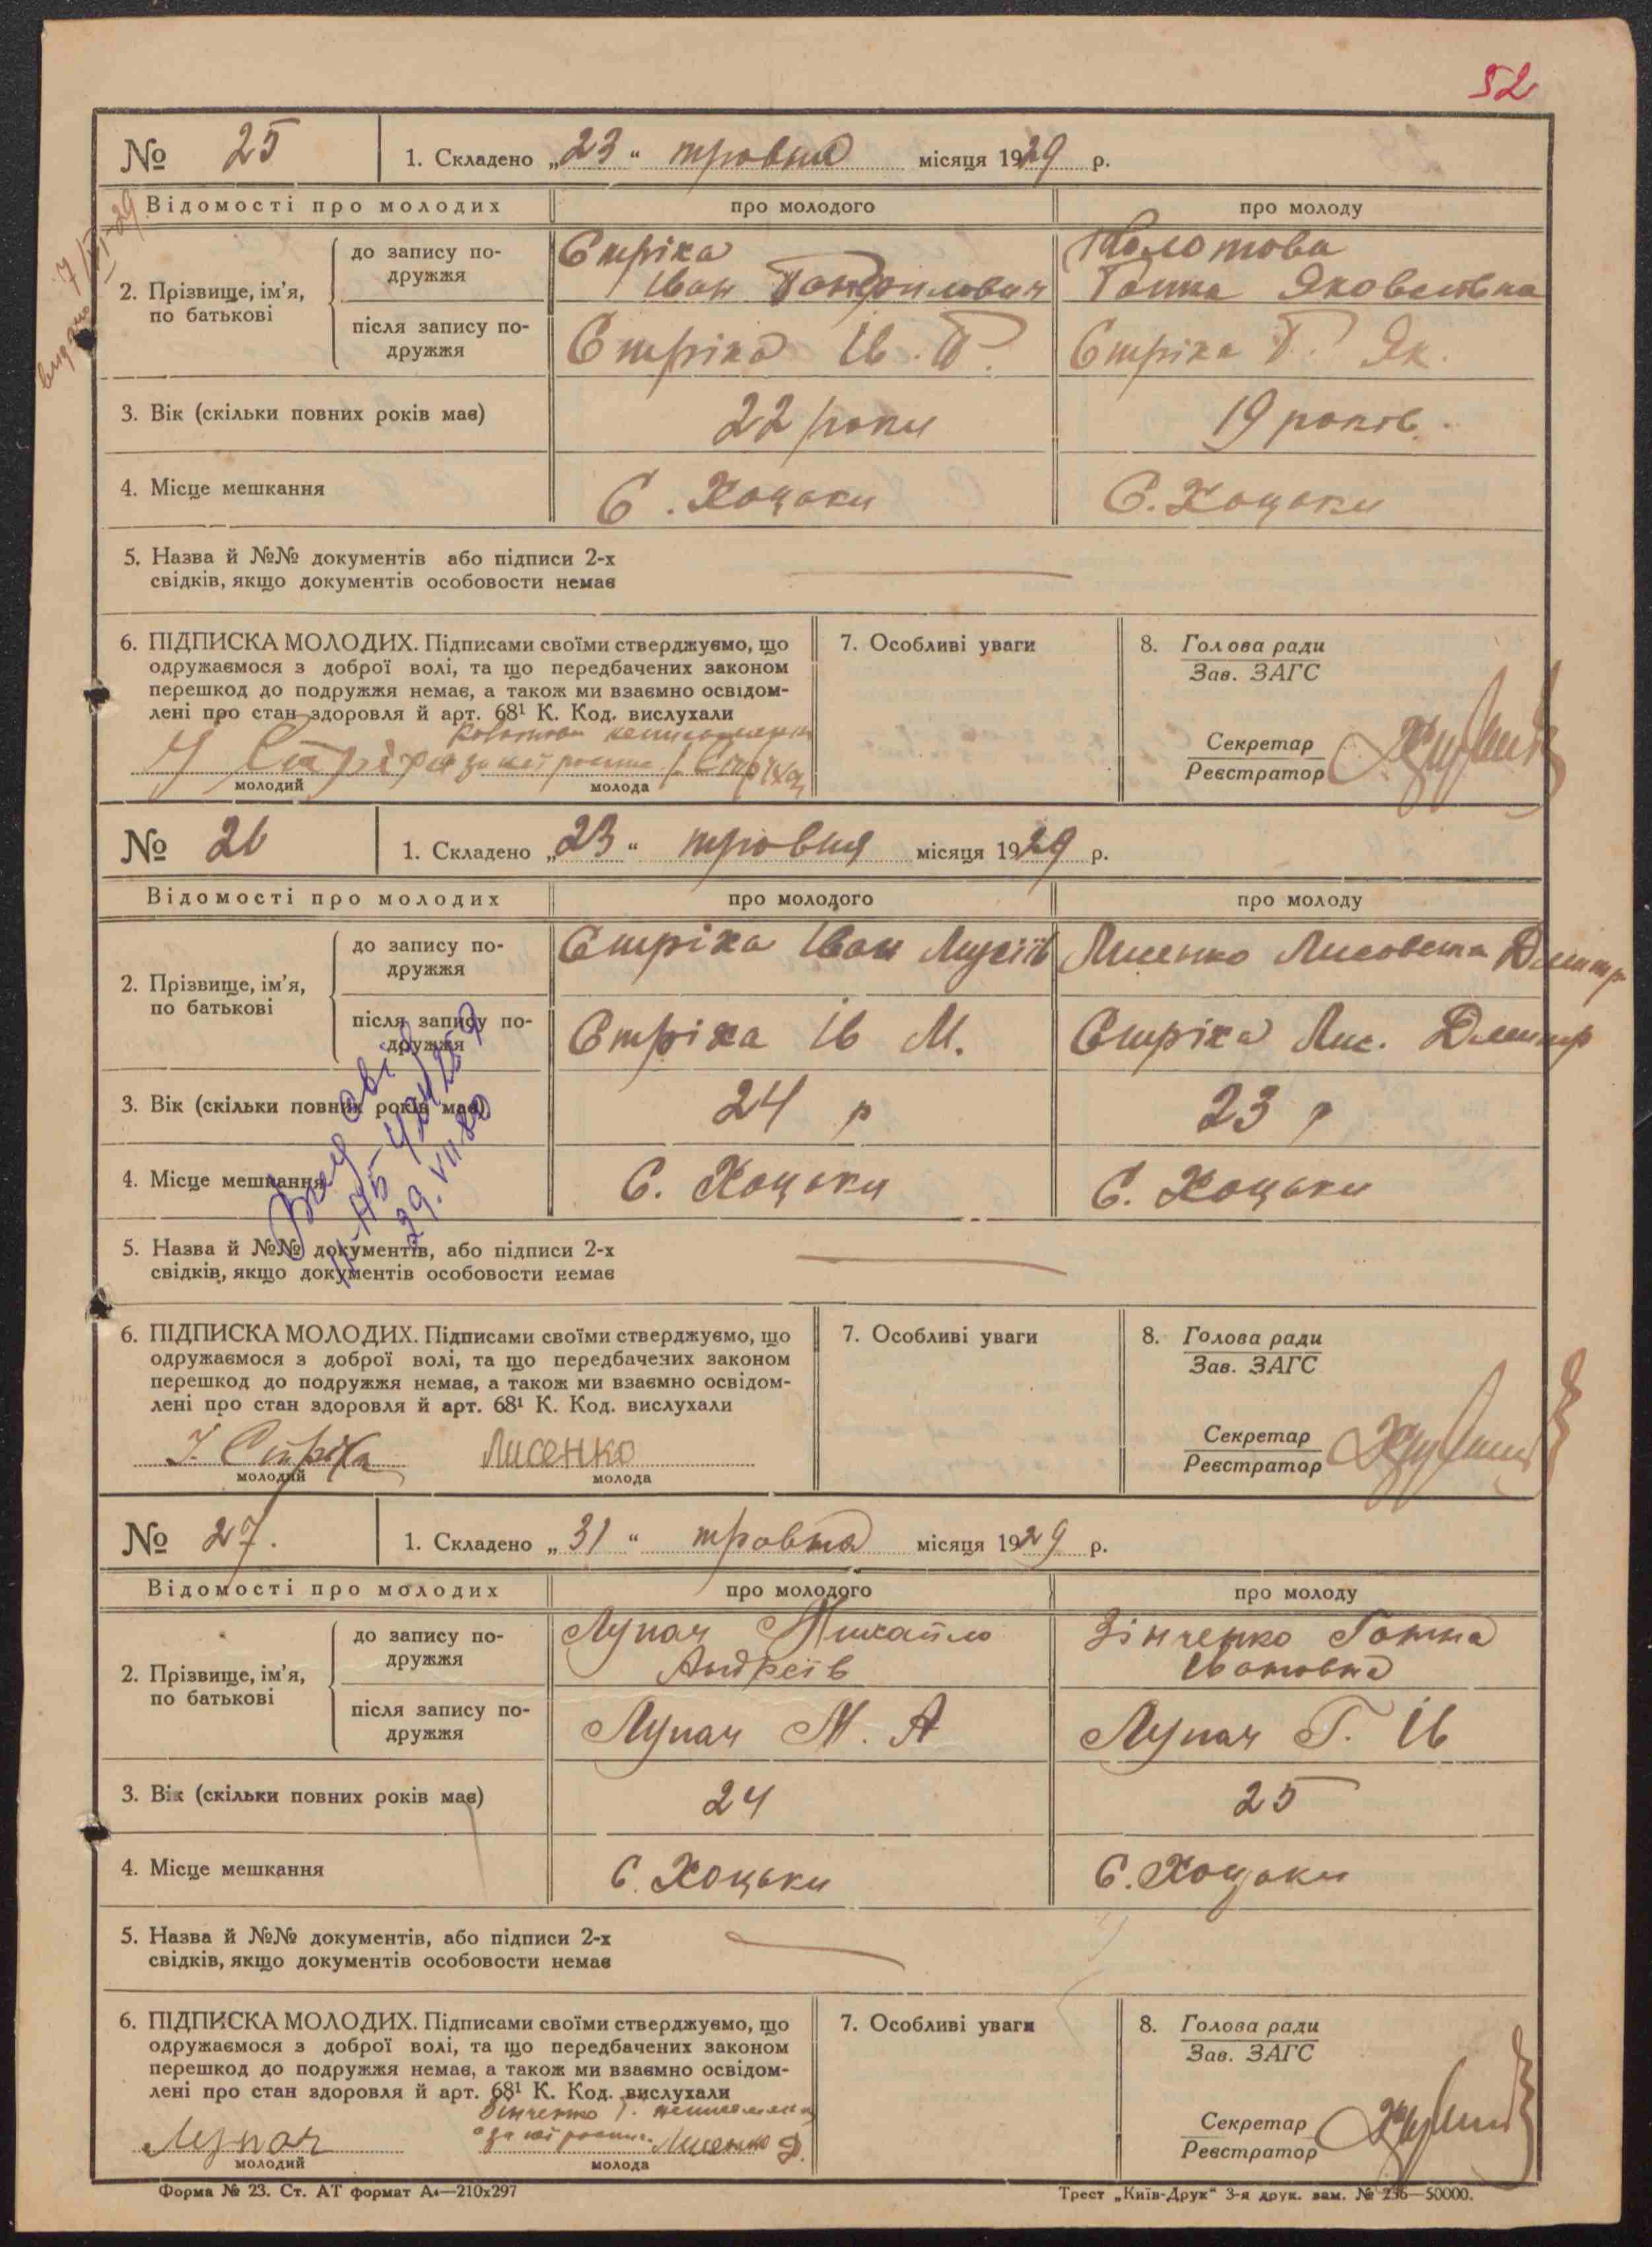 52
№ 25
1. Складено „23“ травня місяця 1929 р.
Відомості про молодих
про молодого
про молоду
2. Прізвище, ім’я, по батькові
до запису по-
дружжя
Стріха
Іван
Ганна Яковлевна
після запису по-
дружжя
Стріха Ів. Г.
Стріха Г. Як.
3. Вік (скільки повних років має)
22 роки
19 років.
4. Місце мешкання
С. Хоцьки
С. Хоцьки
5. Назва й №№ документів або підписи 2-х
свідків, якщо документів особовости немає
6. ПІДПИСКА МОЛОДИХ. Підписами своїми стверджуємо, що
одружаємося з доброї волі, та що передбачених законом
перешкод до подружжя немає, а також ми взаємно освідом-
лені про стан здоровля й арт. 68¹ К. Код. вислухали
неписьменна
І Стріха за неї росписс І. Стріха
молодий
молода
7. Особливі уваги
8. Голова ради
Зав. ЗАГС
Секретар
Реєстратор
№ 26
1. Складено „23“ травня місяця 1929 р.
Відомості про молодих
про молодого
про молоду
2. Прізвище, ім’я,
по батькові
до запису по-
дружжя
Стріха Іван Мусіїв
Лисенко Лисовета Дмитр
після запису по-
дружжя
Стріха Ів М.
Стріха Лис. Дмитр
3. Вік (скільки повних років має)
24 р
23 р
4. Місце мешкання
С. Хоцьки
С. Хоцьки
29.VII 80
5. Назва й №№ документів, або підписи 2-х
свідків, якщо документів особовости немає
6. ПІДПИСКА МОЛОДИХ. Підписами своїми стверджуємо, що
одружаємося з доброї волі, та що передбачених законом
перешкод до подружжя немає, а також ми взаємно освідом-
лені про стан здоровля й арт. 68¹ К. Код. вислухали
І. Стріха
Лисенко
молодий
молода
7. Особливі уваги
8. Голова ради
Зав. ЗАГС
Секретар
Реєстратор
№ 27.
1. Складено „31“ травня місяця 1929 р.
Відомості про молодих
про молодого
про молоду
2. Прізвище, ім’я,
по батькові
до запису по-
дружжя
Лупач Михайло
Андреїв
Зінченко Ганна
Івановна
після запису по-
дружжя
Лупач М. А
Лупач Г. Ів
3. Вік (скільки повних років має)
24
25
4. Місце мешкання
С. Хоцьки
С. Хоцьки
5. Назва й №№ документів, або підписи 2-х
свідків, якщо документів особовости немає
6. ПІДПИСКА МОЛОДИХ. Підписами своїми стверджуємо, що
одружаємося з доброї волі, та що передбачених законом
перешкод до подружжя немає, а також ми взаємно освідом-
лені про стан здоровля й арт. 68¹ К. Код. вислухали
Зінченко Г. неписьменна
Лупач
за неї роспис. Лисенко Д.
молодий
молода
7. Особливі уваги
8. Голова ради
Зав. ЗАГС
Секретар
Реєстратор
Форма № 23. Ст. АТ формат А₄—210х297
Трест „Київ-Друк“ 3-я друк. зам. № 236—50000.